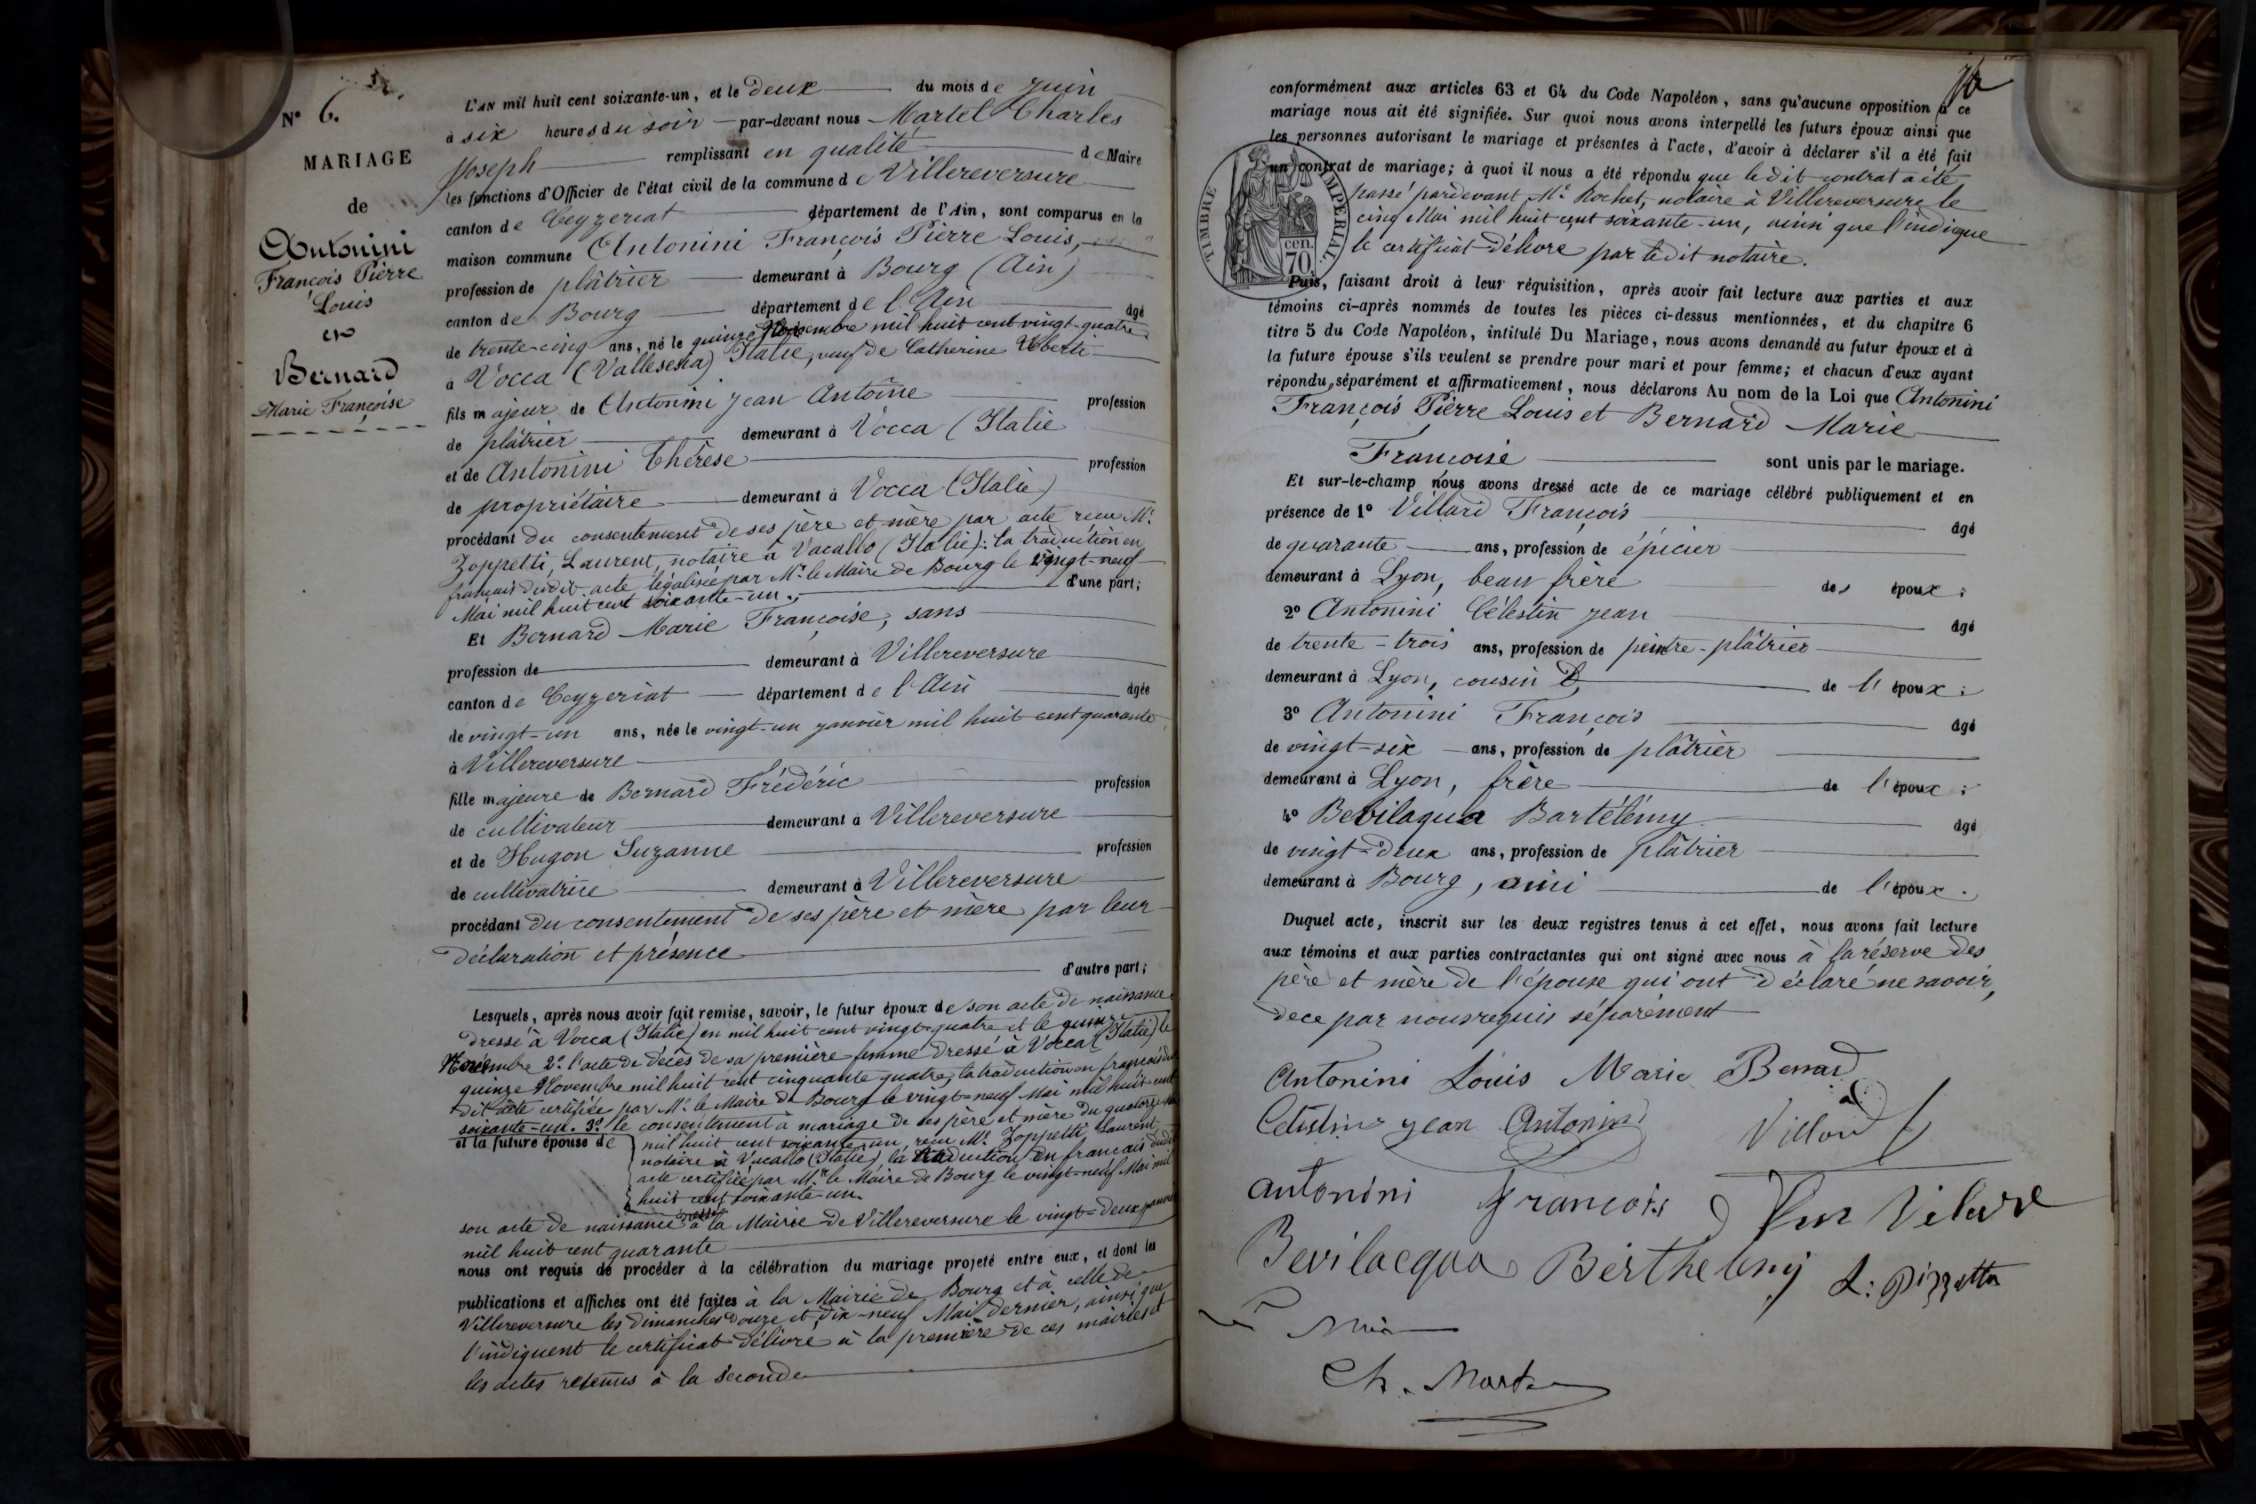 N° 6.
MARIAGE
de
Antonini
François Pierre
Louis
et
Bernard
Marie Françoise
L'AN mil huit cent soixante-un, et le deux du mois de Juin
à six heures du soir par-devant nous Martel Charles
Joseph remplissant en qualité de Maire
les fonctions d'Officier de l'état civil de la commune de Villereversure
canton de Ceyzeriat département de l'Ain, sont comparus en la
maison commune Antonini François Pierre Louis,
profession de plâtrier demeurant à Bourg (Ain)
canton de Bourg département de l'Ain âgé
de trente-cinq ans, né le quinze Novembre mil huit cent vingt-quatre
à Vocca (Vallesesia) Italie, veuf de Catherine Uberti
fils majeur de Antonini Jean Antoine profession
de plâtrier demeurant à Vocca (Italie
et de Antonini Thérèse profession
de propriétaire demeurant à Vocca (Italie)
procédant du consentement de ses père et mère par acte reçu Mr.
Zoppetti, Laurent, notaire à Vacallo (Italie): la traduction en
français dudit acte légalisée par Mr. le Maire de Bourg le vingt-neuf
Mai mil huit cent soixante-un. d'une part;
Et Bernard Marie Françoise, sans
profession de demeurant à Villereversure
canton de Ceyzeriat département de l'Ain âgée
de vingt-un ans, née le vingt-un janvier mil huit cent quarante
à Villereversure
fille majeure de Bernard Frédéric profession
de cultivateur demeurant à Villereversure
et de Hugon Suzanne profession
de cultivatrice demeurant à Villereversure
procédant du consentement de ses père et mère par leur
déclaration et présence
d'autre part;
Lesquels, après nous avoir fait remise, savoir, le futur époux de son acte de naissance
dressé à Vocca (Italie) en mil huit cent vingt-quatre et le quinze
Novembre 2° l'acte de décès de sa première femme dressé à Vocca (Italie) le
quinze Novembre mil huit cent cinquante quatre, la traduction en français du
dit acte certifiée par Mr. le Maire de Bourg le vingt-neuf Mai mil huit cent
soixante-un. 3° le consentement à mariage de ses père et mère du quatorze
et la future épouse de
mil huit cent soixante-un, reçu Mr. Zoppetti Laurent,
notaire à Vacallo (Italie) la traduction en français dudit
acte certifiée par Mr. le Maire de Bourg le vingt-neuf Mai mil
huit cent soixante-un.
son acte de naissance dressé à la Mairie de Villereversure le vingt-deux janvier
mil huit cent quarante
nous ont requis de procéder à la célébration du mariage projeté entre eux, et dont les
publications et affiches ont été faites à la Mairie de Bourg et à celle de
Villereversure les dimanches douze et dix-neuf Mai dernier, ainsi que
l'indiquent le certificat délivré à la première de ces mairies et
les actes retenus à la seconde
conformément aux articles 63 et 64 du Code Napoléon, sans qu'aucune opposition à ce
mariage nous ait été signifiée. Sur quoi nous avons interpellé les futurs époux ainsi que
les personnes autorisant le mariage et présentes à l'acte, d'avoir à déclarer s'il a été fait
un contrat de mariage; à quoi il nous a été répondu que le dit contrat a été
passé pardevant Me. Rochet, notaire à Villereversure le
cinq Mai mil huit cent soixante-un, ainsi que l'indique
le certificat délivré par ledit notaire.
TIMBRE IMPERIAL.
70 cen.
Puis, faisant droit à leur réquisition, après avoir fait lecture aux parties et aux
témoins ci-après nommés de toutes les pièces ci-dessus mentionnées, et du chapitre 6
titre 5 du Code Napoléon, intitulé Du Mariage, nous avons demandé au futur époux et à
la future épouse s'ils veulent se prendre pour mari et pour femme; et chacun d'eux ayant
répondu séparément et affirmativement, nous déclarons Au nom de la Loi que Antonini
François Pierre Louis et Bernard Marie
Françoise sont unis par le mariage.
Et sur-le-champ nous avons dressé acte de ce mariage célébré publiquement et en
présence de 1° Villard François âgé
de quarante ans, profession de épicier
demeurant à Lyon, beau frère des époux;
2° Antonini Célestin Jean âgé
de trente-trois ans, profession de peintre-plâtrier
demeurant à Lyon, cousin de l'époux;
3° Antonini François âgé
de vingt-six ans, profession de plâtrier
demeurant à Lyon, frère de l'époux;
4° Bevilaqua Bartélémy âgé
de vingt-deux ans, profession de plâtrier
demeurant à Bourg, ami de l'époux.
Duquel acte, inscrit sur les deux registres tenus à cet effet, nous avons fait lecture
aux témoins et aux parties contractantes qui ont signé avec nous à la réserve des
père et mère de l'épouse qui ont déclaré ne savoir,
de ce par nous requis séparément
Antonini Louis Marie Bernard
Celestin Jean Antonini Villard
antonini françois
Bevilacqua Berthelemy
Ch. Martel